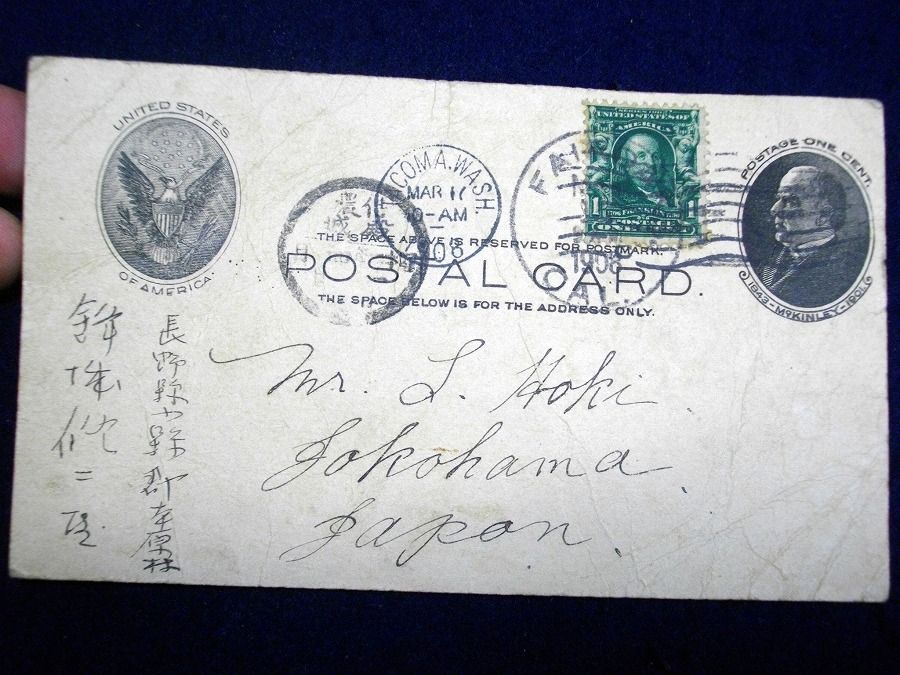 UNITED STATES
OF AMERICA
TACOMA. WASH.
MAR 17
10-AM
08
SERIES 1902
UNITED STATES OF
AMERICA
1
FRANKLIN
1
ONE CENT
1908
CAL.
POSTAGE ONE CENT.
1843-McKINLEY-1901.
THE SPACE ABOVE IS RESERVED FOR POSTMARK.
POSTAL CARD.
THE SPACE BELOW IS FOR THE ADDRESS ONLY.
Mr. S. Hoki.
Yokohama
Japan.
長野縣小縣郡